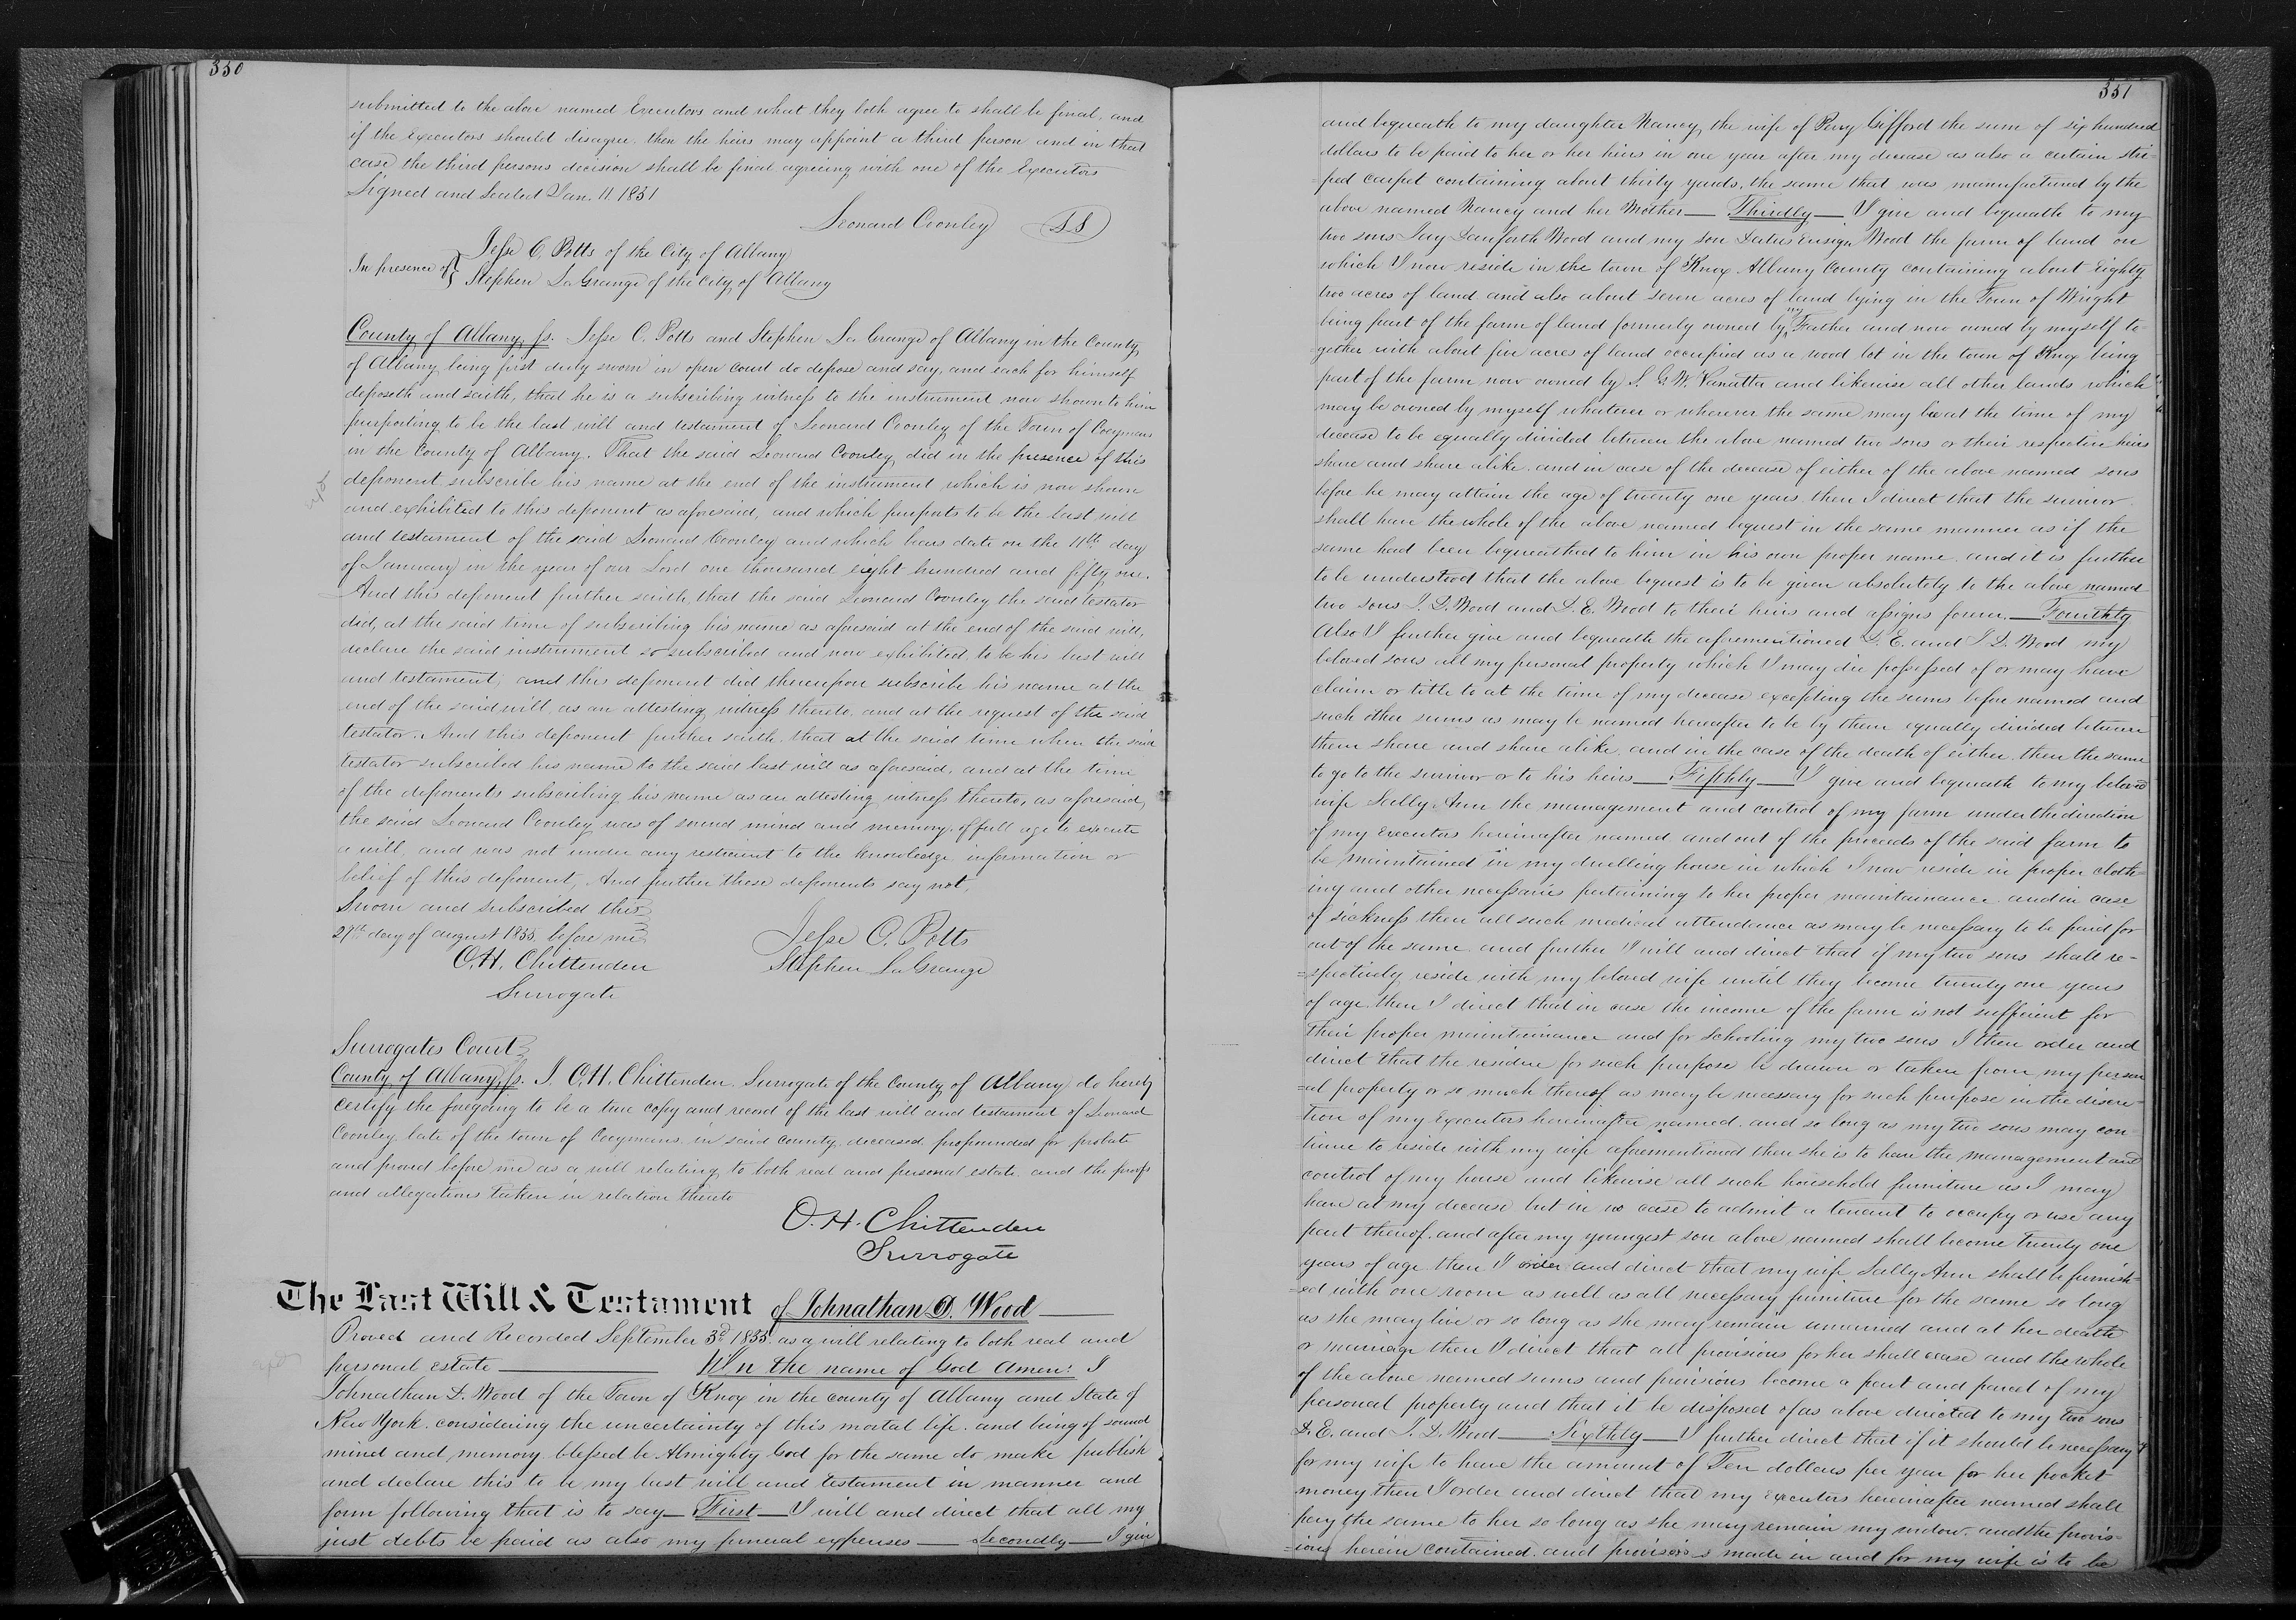 330
submitted to the above named Executors and what they both agree to shall be final, and
if the Executors should disagree, then the heirs may appoint a third person and in that
case the third persons decision shall be final agreeing with one of the Executors
Signed and Sealed Jan. 11. 1851
Leonard Coonley L.S
In presence of Jesse C. Potts of the City of Albany
Stephen La Grange of the City of Albany
County of Albany, ss. Jesse C. Potts and Stephen La Grange of Albany in the County
of Albany being first duly sworn in open court do depose and say, and each for himself
deposeth and saith, that he is a subscribing witness to the instrument now shown to him
purporting to be the last will and testament of Leonard Coonley of the Town of Coeymans
in the County of Albany. That the said Leonard Coonley did in the presence of this
deponent subscribe his name at the end of the instrument which is now shown
and exhibited to this deponent as aforesaid, and which purports to be the last will
and testament of the said Leonard Coonley and which bears date on the 11th day
of January in the year of our Lord one thousand eight hundred and fifty one.
And this deponent further saith, that the said Leonard Coonley the said testator
did, at the said time of subscribing his name as aforesaid at the end of the said will,
declare the said instrument so subscribed and now exhibited, to be his last will
and testament, and this deponent did thereupon subscribe his name at the
end of the said will as an attesting witness thereto, and at the request of the said
testator. And this deponent further saith that at the said time when the said
testator subscribed his name to the said last will as aforesaid, and at the time
of the deponents subscribing his name as an attesting witness thereto, as aforesaid,
the said Leonard Coonley was of sound mind and memory, of full age to execute
a will, and was not under any restraint to the knowledge information or
belief of this deponent, And further these deponents say not,
Sworn and subscribed this
29th day of august 1855. before me
O.H. Chittenden
Surrogate
Jesse C. Potts
Stephen La Grange
Surrogates Court
County of Albany, ss. I. O.H. Chittenden. Surrogate of the County of Albany do hereby
certify the foregoing to be a true copy and record of the last will and testament of Leonard
Coonley late of the town of Coeymans, in said county, deceased, propounded for probate
and proved before me as a will relating to both real and personal estate. and the proofs
and allegations taken in relation thereto
O. H. Chittenden
Surrogate
The Last Will & Testament of Johnathan D. Wood
Proved and Recorded September 3d 1855. as a will relating to both real and
personal estate In the name of God Amen: I
Johnathan D. Wood of the Town of Knox in the county of Albany and State of
New York. considering the uncertainty of this mortal life. and being of sound
mind and memory blessed be Almighty God for the same do make publish
and declare this to be my last will and testament in manner and
form following that is to say First I will and direct that all my
just debts be paid as also my funeral expenses Secondly I give
331
and bequeath to my daughter Nancy, the wife of Perry Gifford the sum of six hundred
dollars to be paid to her or her heirs in one year after my decease as also a certain stri-
=ped carpet containing about thirty yards, the same that was manufactured by the
above named Nancy and her Mother Thirdly I give and bequeath to my
two sons Jay Danforth Wood and my son Ensign Wood the farm of land on
which I now reside in the town of Knox Albany County containing about Eighty
two acres of land and also about seven acres of land lying in the Town of Wright
being part of the farm of land formerly owned by my Father and now owned by myself to-
gether with about five acres of land occupied as a wood lot in the town of Knox being
part of the farm now owned by Vanatta and likewise all other lands which
may be owned by myself whatever or wherever the same may be at the time of my
decease to be equally divided between the above named two sons or their respective heirs
share and share alike. and in case of the decease of either of the above named sons
before he may attain the age of twenty one years, then I direct that the survivor
shall have the whole of the above named bequest in the same manner as if the
same had been bequeathed to him in his own proper name. and it is further
to be understood that the above bequest is to be given absolutely to the above named
two sons J. D. Wood and D. E. Wood to their heirs and assigns forever. Fourthly
Also I further give and bequeath the aforementioned D. E. and J. D. Wood my
beloved sons all my personal property which I may die possessed of or may have
claim or title to at the time of my decease excepting the sums before named and
such other sums as may be named hereafter to be by them equally divided between
them share and share alike, and in the case of the death of either, then the same
to go to the survivor or to his heirs Fifthly I give and bequeath to my beloved
wife Sally Ann the management and control of my farm under the direction
of my Executors hereinafter named and out of the proceeds of the said farm to
be maintained in my dwelling house in which I now reside in proper cloth-
ing and other necessaries pertaining to her proper maintainance and in case
of sickness then all such medical attendance as may be necessary to be paid for
out of the same. and further I will and direct that if my two sons shall re-
=spectively reside with my beloved wife until they become twenty one years
of age then I direct that in case the income of the farm is not sufficient for
their proper maintainance and for schooling my two sons I then order and
direct that the residue for such purpose be drawn or taken from my person
=al property or so much thereof as may be necessary for such purpose in the discre-
tion of my Executors hereinafter named. and so long as my two sons may con-
tinue to reside with my wife aforementioned then she is to have the management and
control of my house and likewise all such household furniture as I may
have at my decease but in no case to admit a tenant to occupy or use any
part thereof. and after my youngest son above named shall become twenty one
years of age then I order and direct that my wife Sally Ann shall be furnish-
=ed with one room as well as all necessary furniture for the same so long
as she may live or so long as she may remain unmarried and at her death
or marriage then I direct that all provisions for her shall cease and the whole
of the above named sums and provisions become a part and parcel of my
personal property and that it be disposed of as above directed to my two sons
D. E. and J. D. Wood Sixthly I further direct that if it should be necessary
for my wife to have the amount of Ten dollars per year for her pocket
money then I order and direct that my executors hereinafter named shall
pay the same to her so long as she may remain my widow. and the provis-
=ions herein contained. and provisions made in and for my wife is to be